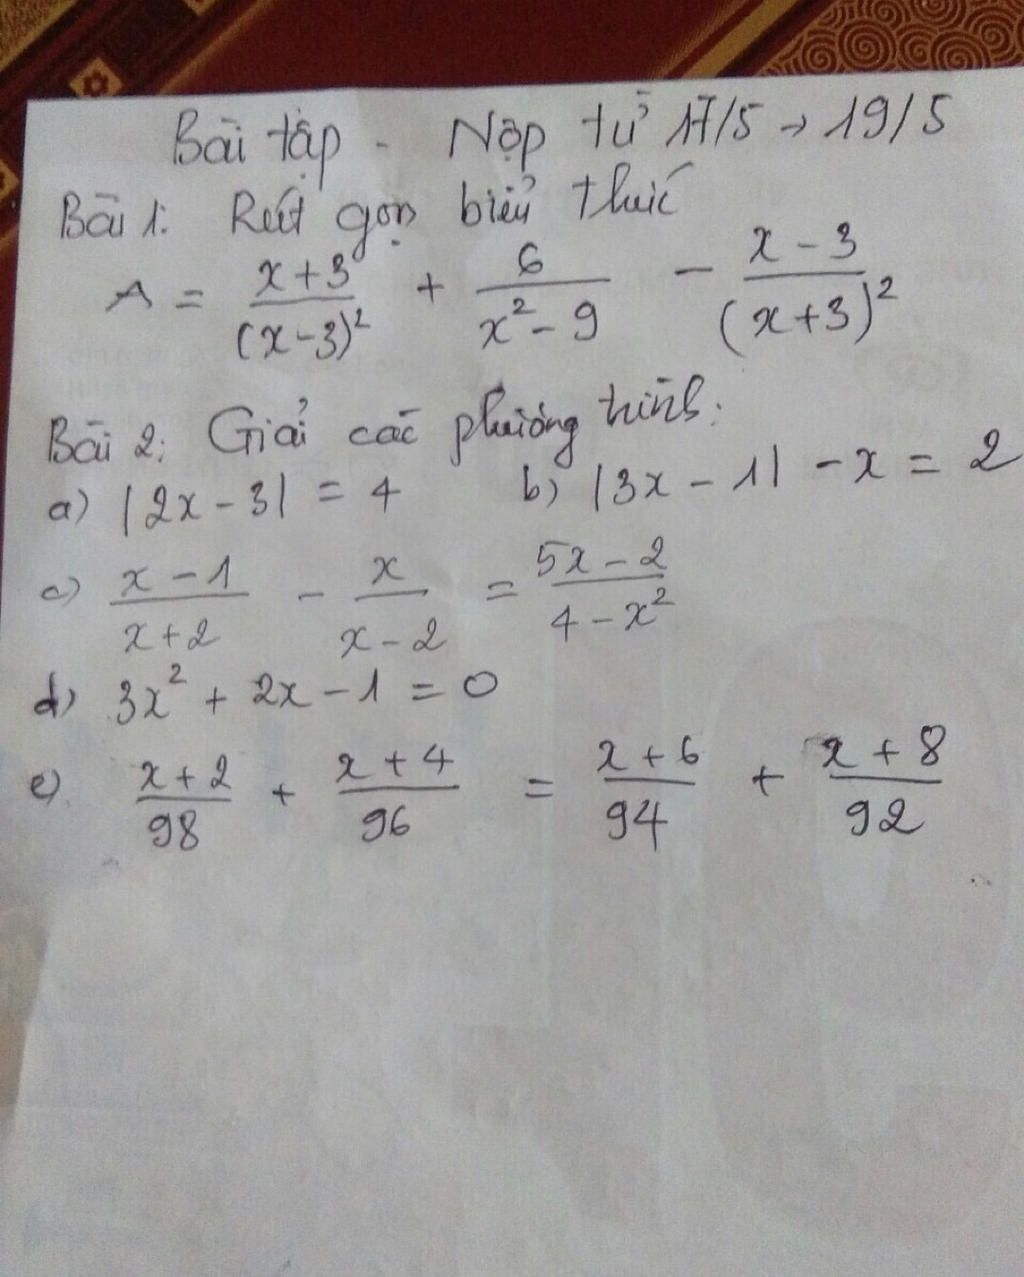 Bài tập - Nộp từ 17/5 → 19/5
Bài 1: Rút gọn biểu thức
A = \frac{x+3}{(x-3)^2} + \frac{6}{x^2-9} - \frac{x-3}{(x+3)^2}
Bài 2: Giải các phương trình:
a) |2x-3| = 4 b) |3x-1| -x = 2
c) \frac{x-1}{x+2} - \frac{x}{x-2} = \frac{5x-2}{4-x^2}
d) 3x^2 + 2x - 1 = 0
e) \frac{x+2}{98} + \frac{x+4}{96} = \frac{x+6}{94} + \frac{x+8}{92}